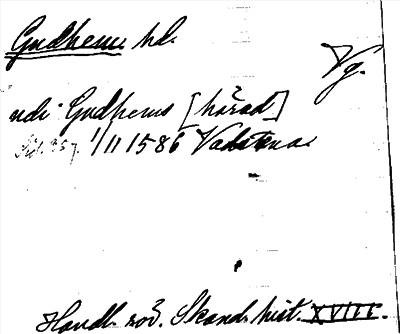 Gudhems hd.
Vg.
udi Gudhems [härad]
Sid. 357. 1/11 1586 Vadstena
Handl. rör. Skand. hist. XVIII.